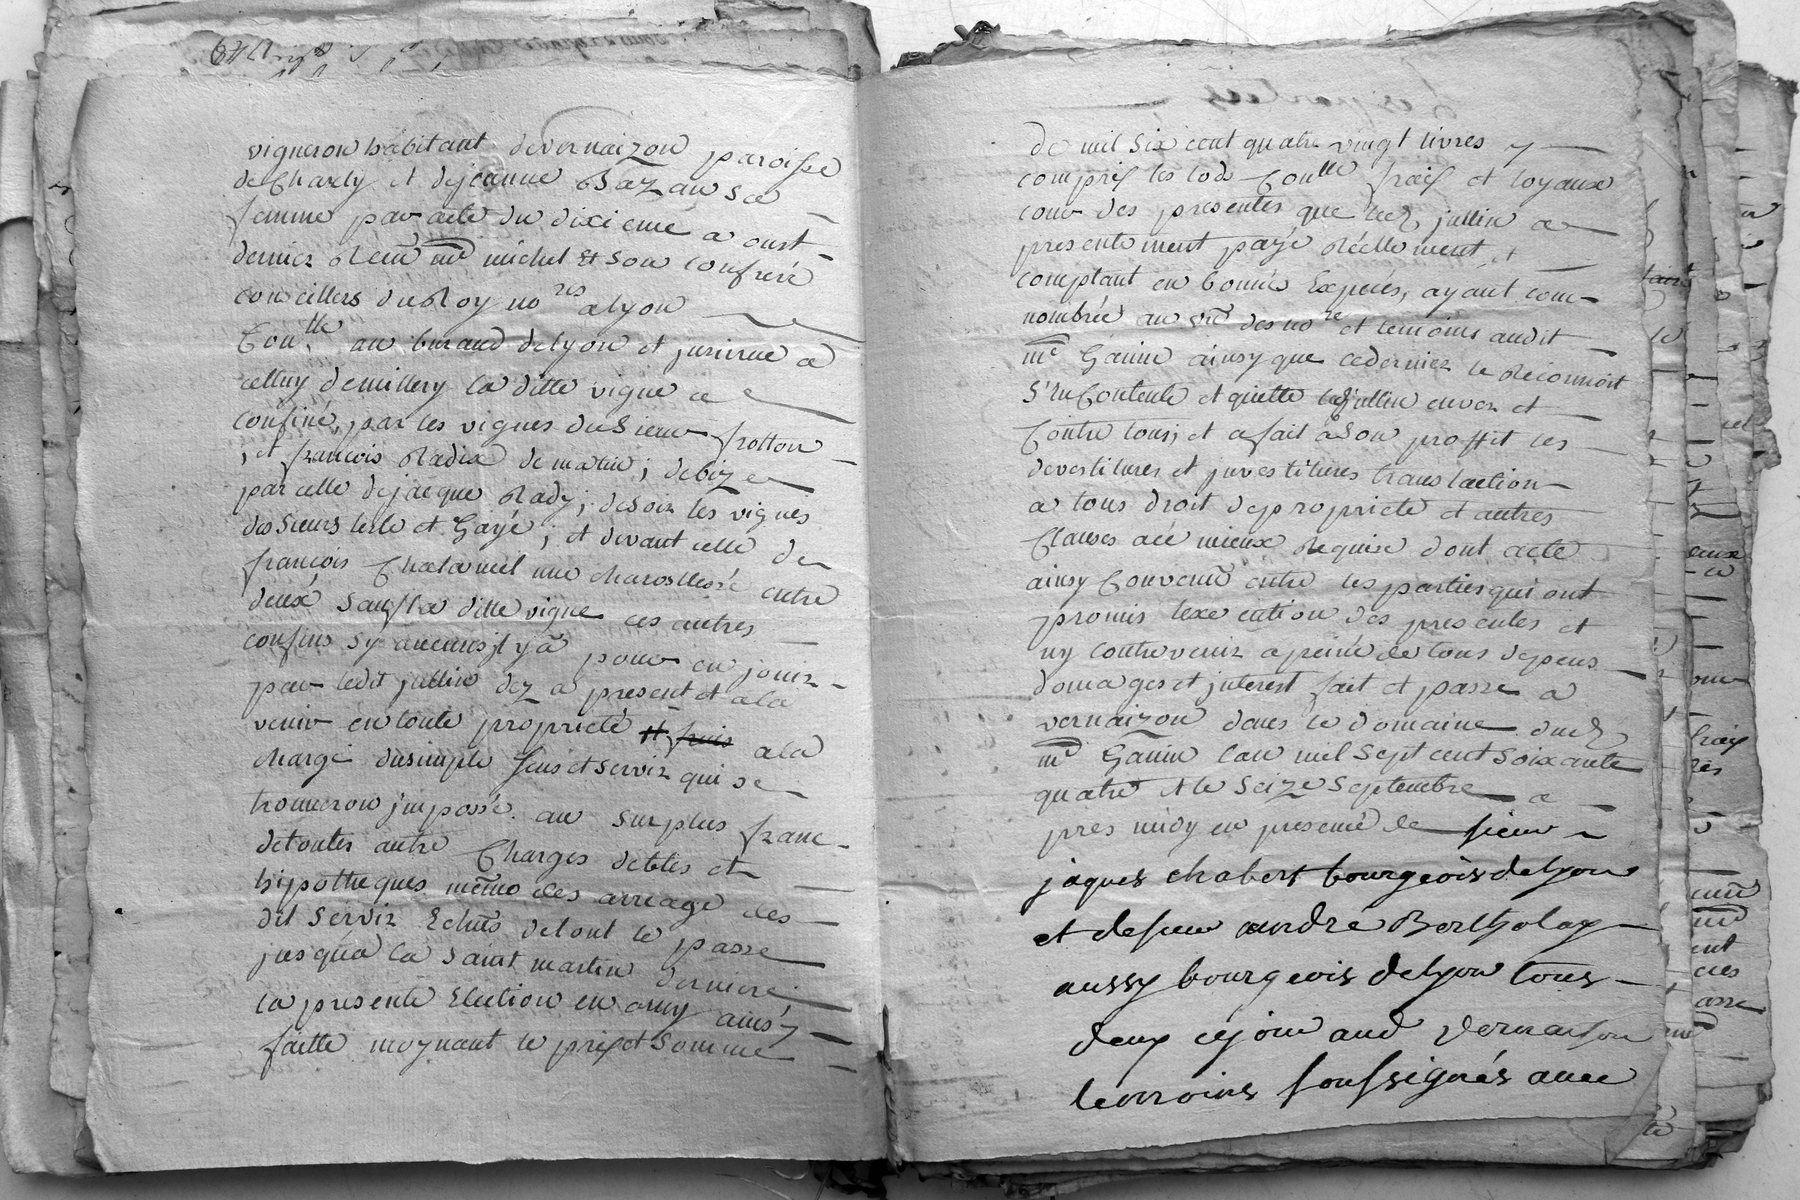 vigneron habitant devernaizon paroisse
de Charly et dejeanne Bazan sa
femme par acte du dixieme aoust
dernier Receu me michel et son confrere
conseillers du Roy nores alyon
Conlle au buraud delyon et jnsinue a
celluy demillery la ditte vigne ce
confine, par les vignes du Sieur frotton
, et francois Radix de matin ; debize
par celle dejacque Rady ; desoir les vignes
des Sieurs et Gayé ; et devant celle de
francois une entre
deux sauf la ditte vigne ces autres
confins sy aucuns jl y a pour en jouir
par ledit jullin dez a present et ala
venir entoute propriete ala
charge dusimple sens et servix qui se
trouveron jmposé. au surplus franc
detoutes autre Charges debtes et
hipotheques même des arreage des
dit servix Echus detout le passe
jusqua la saint martin derniere,
la presente Election en amy ainsy
faitte moynant le prix et somme
de mil six cent quatre vingt livres y
compris les lods Conlle frais et loyaux
cour des presentes que led jullin a
presentement payé Réellement et
comptant en bonnes Experes, ayant com-
nombrée au veu des nore et temoins audit
me Ganin ainsy que cedernier le Reconnoit
S'en Contente et quitte led jullin envers et
Contre tous; et a fait ason proffit les
devestitures et jnvestitures translaction
a tous droit depropriete et autres
Clauses acé mieux Requise dont acte
ainsy Convenu entre les parties qui ont
promis lexecution des presentes et
ny contrevenir apeine de tous depens
domages et jnterest fait et passe a
vernaizon dans le domaine dud
me Ganin lan mil sept cent soixante
quatre et le seize septembre a
pres midy en presence de sieur
jaques chabert bourgeois de lyon
et de sieur andré Bertholay
aussy bourgeois delyon tous
deux cejour aud vernaison
temoins soussignés avec